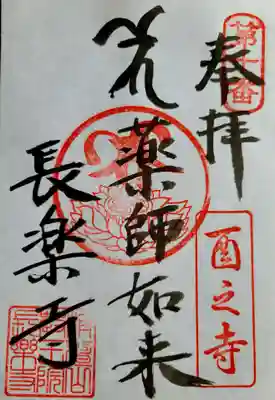 第十番
奉拝
酉之寺
薬師如来
長楽寺